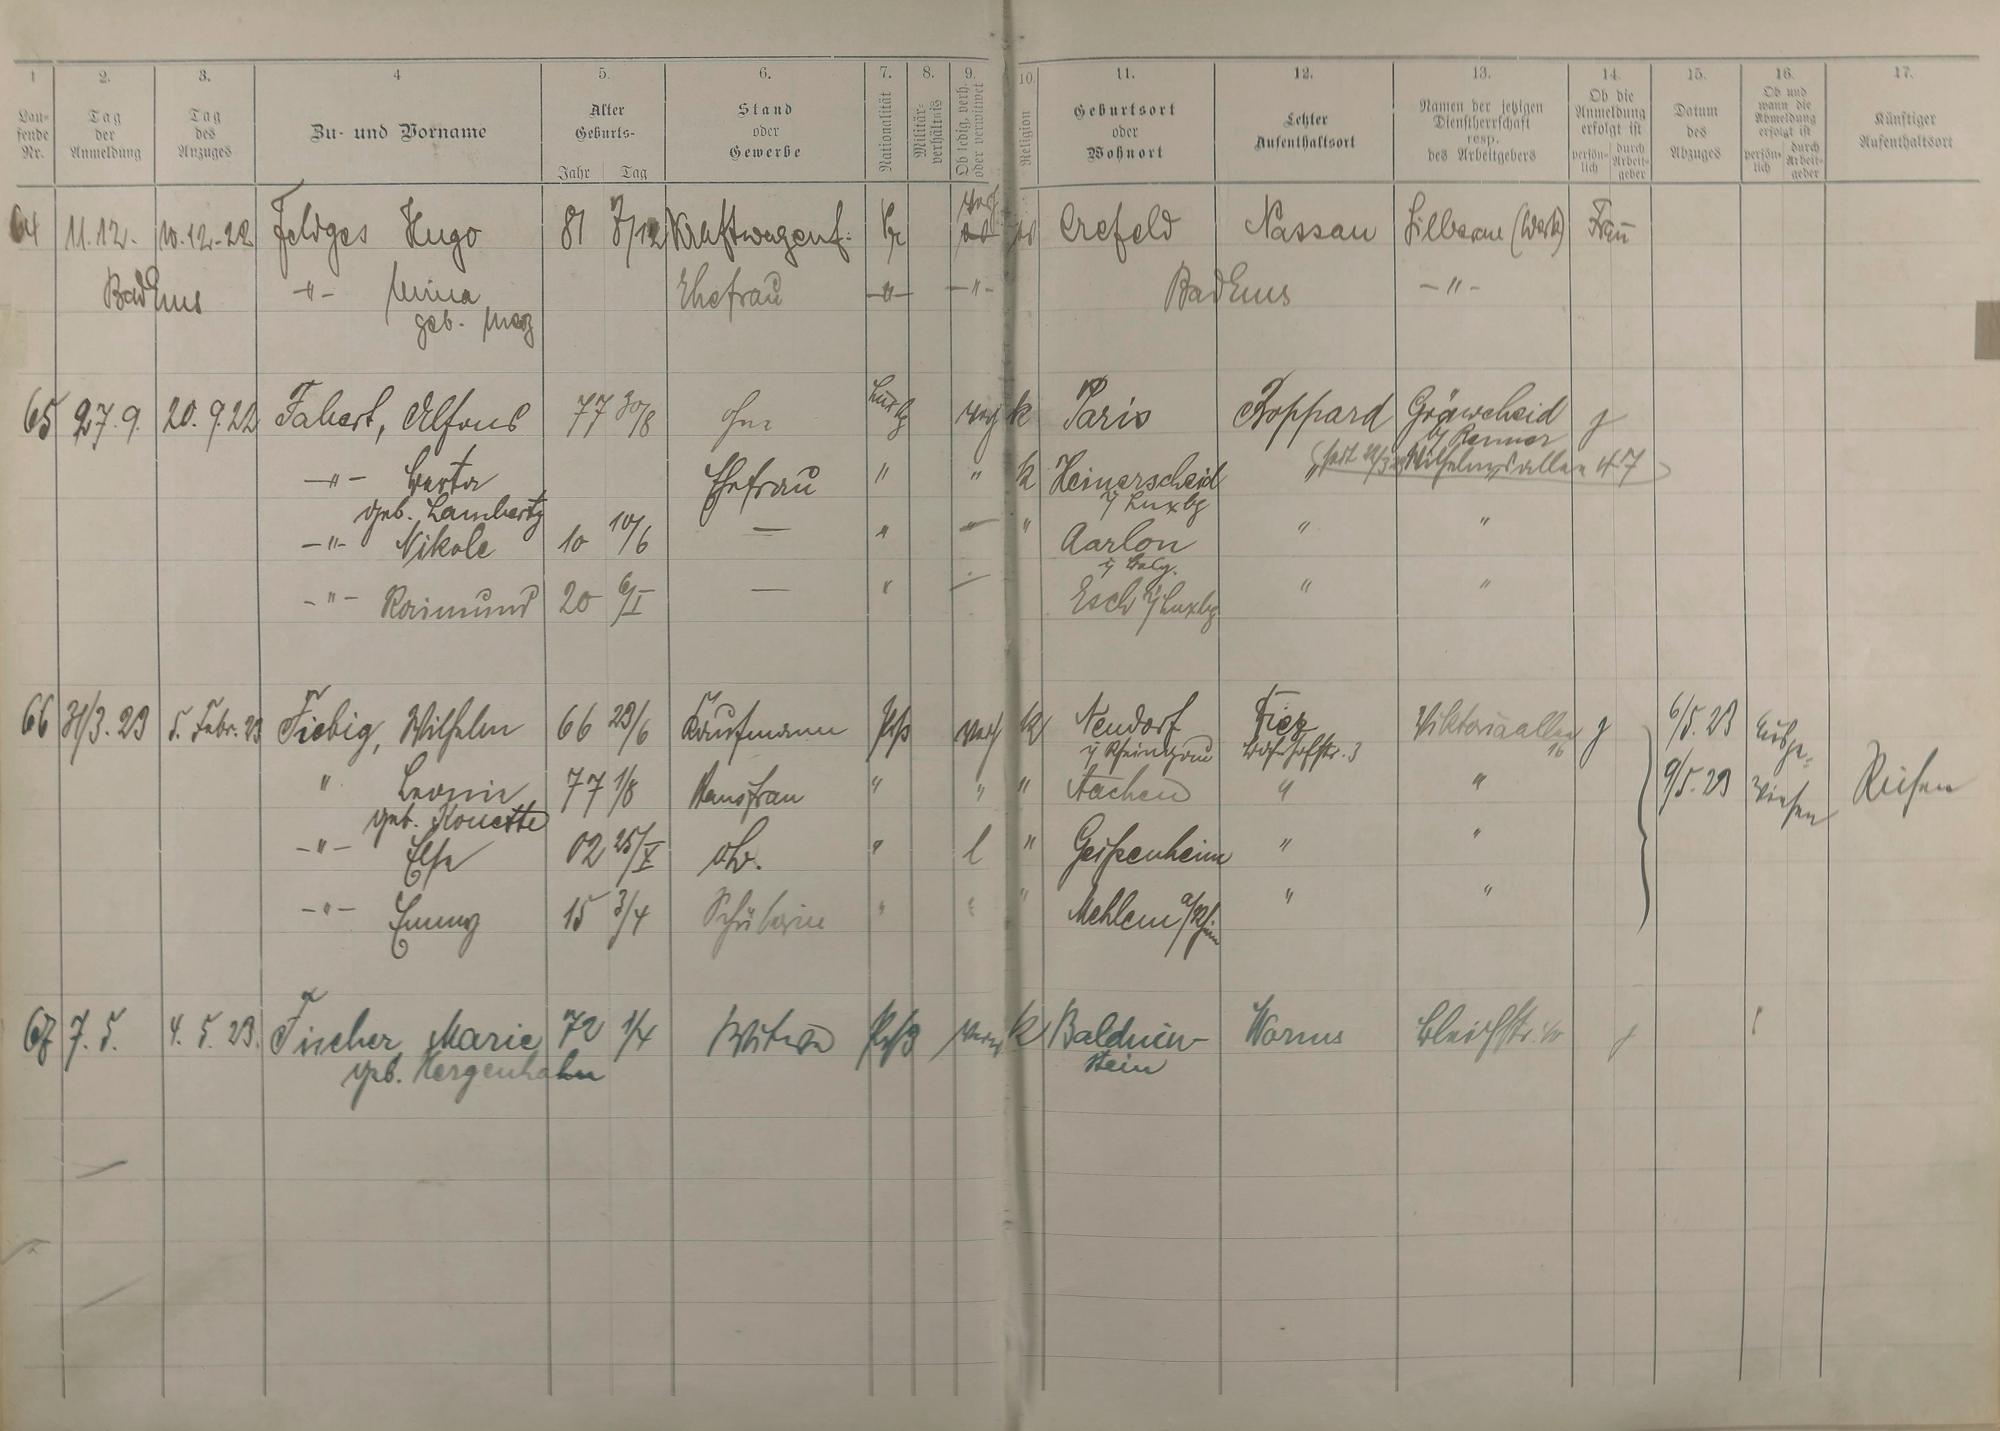 1 2. 3. 4 5. 6. 7. 8. 9. 10. 11. 12. 13. 14. 15. 16. 17.
Lau-
fende
Nr.
Tag
der
Anmeldung
Tag
des
Anzuges
Zu- und Vorname
Alter
Geburts-
Jahr Tag
Stand
oder
Gewerbe
Nationalität
Militär-
verhältnis
Ob ledig, verh.
oder verwitwet
Religion
Geburtsort
oder
Wohnort
Letzter
Aufenthaltsort
Namen der jetzigen
Dienstherrschaft
resp.
des Arbeitgebers
Ob die
Anmeldung
erfolgt ist
persön-
lich
durch
Arbeit-
geber
Datum
des
Abzuges
Ob und
wann die
Abmeldung
erfolgt ist
persön-
lich
durch
Arbeit-
geber
Künftiger
Aufenthaltsort
64 11.12. 10.12.22 Feldges Hugo 81 7/12 Kraftwagenf. Pr verh. Crefeld Nassau Silberau (Werk) Frau
Bad Ems -"- Mina Ehefrau -"- -"- Bad Ems -"-
geb.
65 27.9. 20.9.22 Fabert, Alfons 77 30/8 Luxbg verh k Paris Boppard
-"- Berta Ehefrau " " k Heinerscheid " Wilhelmsallee 47
geb. Lambertz i/ Luxbg
-"- Nikole 10 10/6 — " — " Aarlon " "
i/ Belg.
-"- Raimund 20 6/I — " — Esch i/ Luxbg " "
66 31/3.23 5. Febr. 23 Fiebig, Wilhelm 66 29/6 Kaufmann Prß verh k Neudorf Diez Viktoriaallee 16 6/5.23 Ausge-
i/ Rheingau Bahnhofstr. 3
" Leonie 77 1/8 Hausfrau " " " Aachen " " 9/5.23 wiesen Reisen
geb. Konette
-"- Else 02 25/V oh. " l " Geisenheim " "
-"- Emmy 15 3/4 Schülerin " " " Mehlem a/Rhein " "
67 7.5. 4.5.23. Fischer Marie 72 1/4 Witwe Prß verw k Balduin- Worms Bleichstr.
geb. Hergenhahn stein